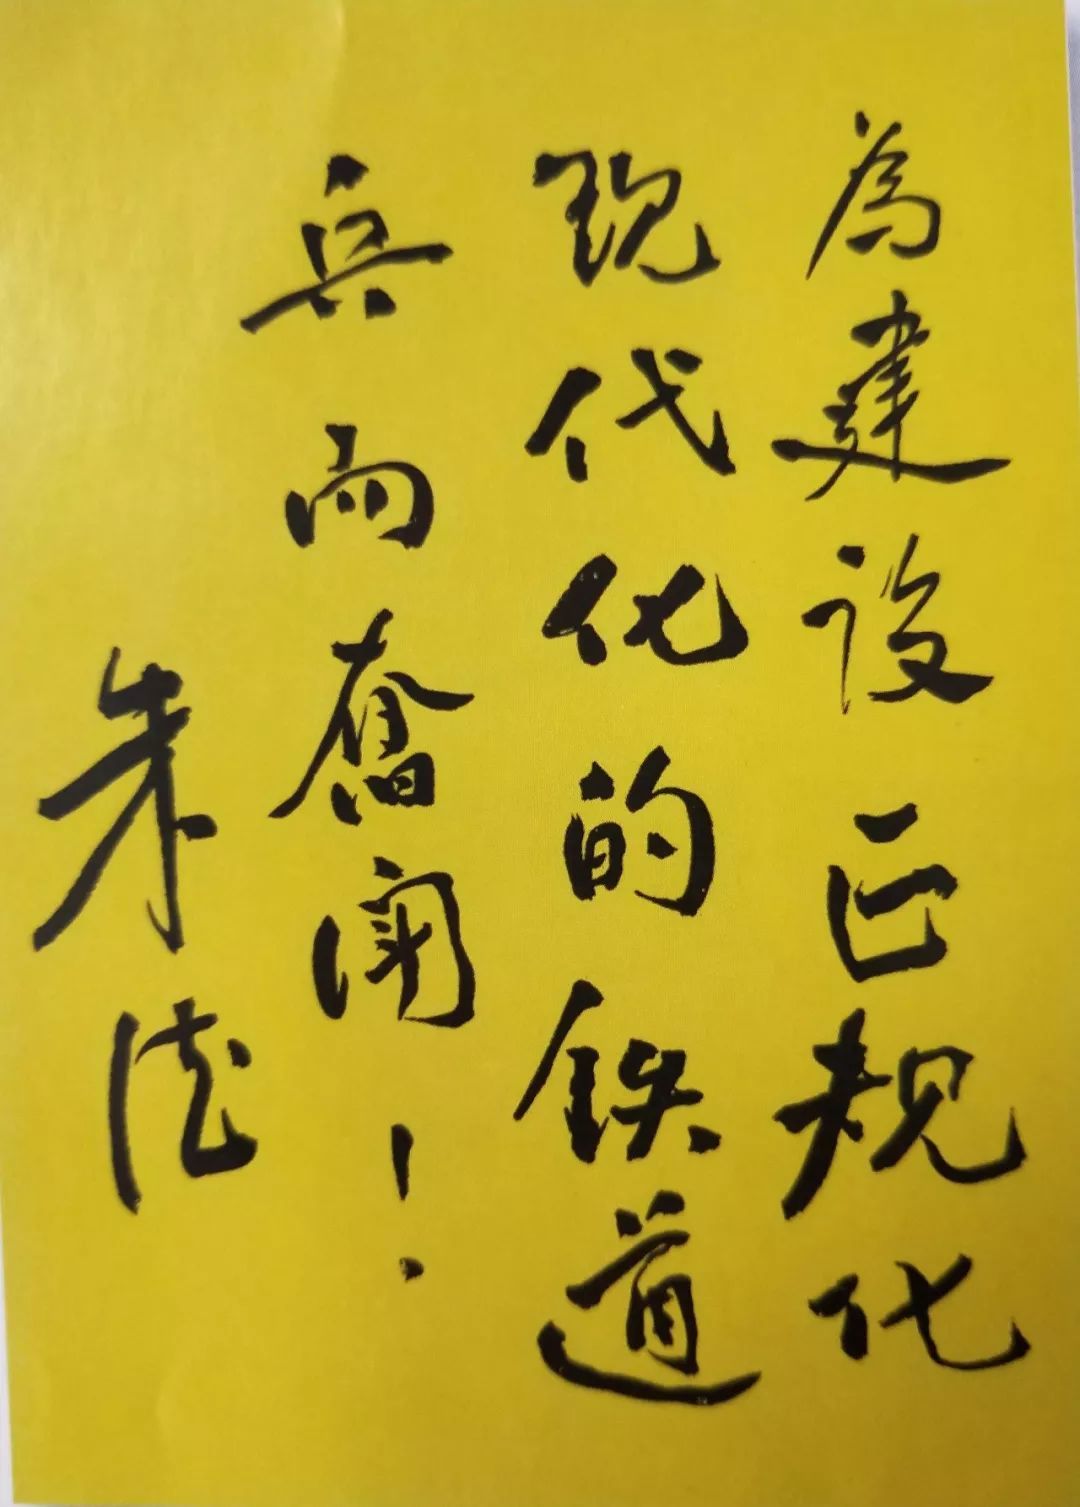 為建设正规化
现代化的铁道
兵而奮闘！
朱德